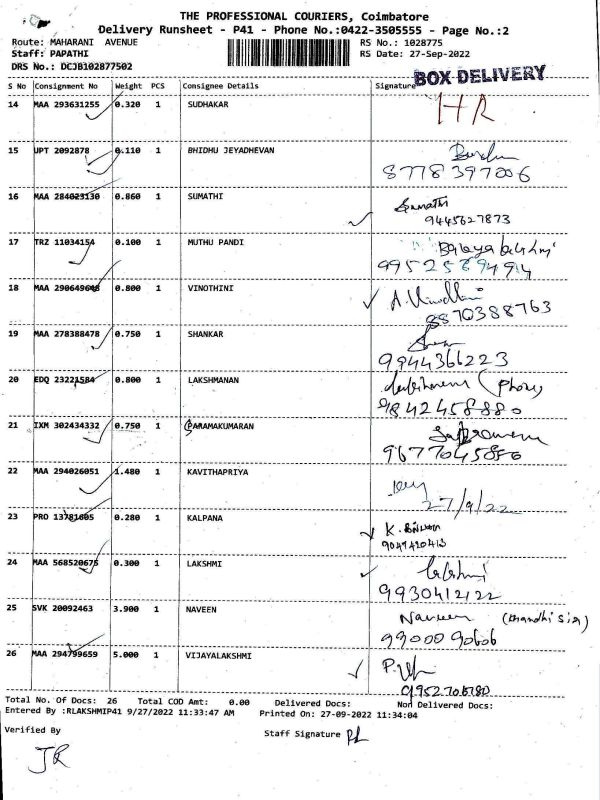 THE PROFESSIONAL COURIERS, Coimbatore
Delivery Runsheet - P41 - Phone No.:0422-3505555 - Page No.:2
Route: MAHARANI AVENUE RS No.: 1028775
Staff: PAPATHI RS Date: 27-Sep-2022
DRS No.: DCJB102877502
BOX DELIVERY
S No Consignment No Weight PCS Consignee Details Signature
14 MAA 293631255 0.320 1 SUDHAKAR HR
15 UPT 2092878 0.110 1 BHIDHU JEYADHEVAN
8778397006
16 MAA 284023130 0.860 1 SUMATHI Sumathi
9445627873
17 TRZ 11034154 0.100 1 MUTHU PANDI
9952589494
18 MAA 290649608 0.800 1 VINOTHINI
8870388763
19 MAA 278388478 0.750 1 SHANKAR
9944366223
20 EDQ 23221584 0.800 1 LAKSHMANAN (Phone)
9842458880
21 IXM 302434332 0.750 1 PARAMAKUMARAN
9677045886
22 MAA 294026051 1.480 1 KAVITHAPRIYA
27/9/22
23 PRO 13781605 0.280 1 KALPANA
9047420413
24 MAA 568520675 0.300 1 LAKSHMI Lakshmi
9930412122
25 SVK 20092463 3.900 1 NAVEEN Naveen
9900090606
26 MAA 294799659 5.000 1 VIJAYALAKSHMI
Total No. Of Docs: 26 Total COD Amt: 0.00 Delivered Docs: Non Delivered Docs:
Entered By :RLAKSHMIP41 9/27/2022 11:33:47 AM Printed On: 27-09-2022 11:34:04
Verified By Staff Signature
JR